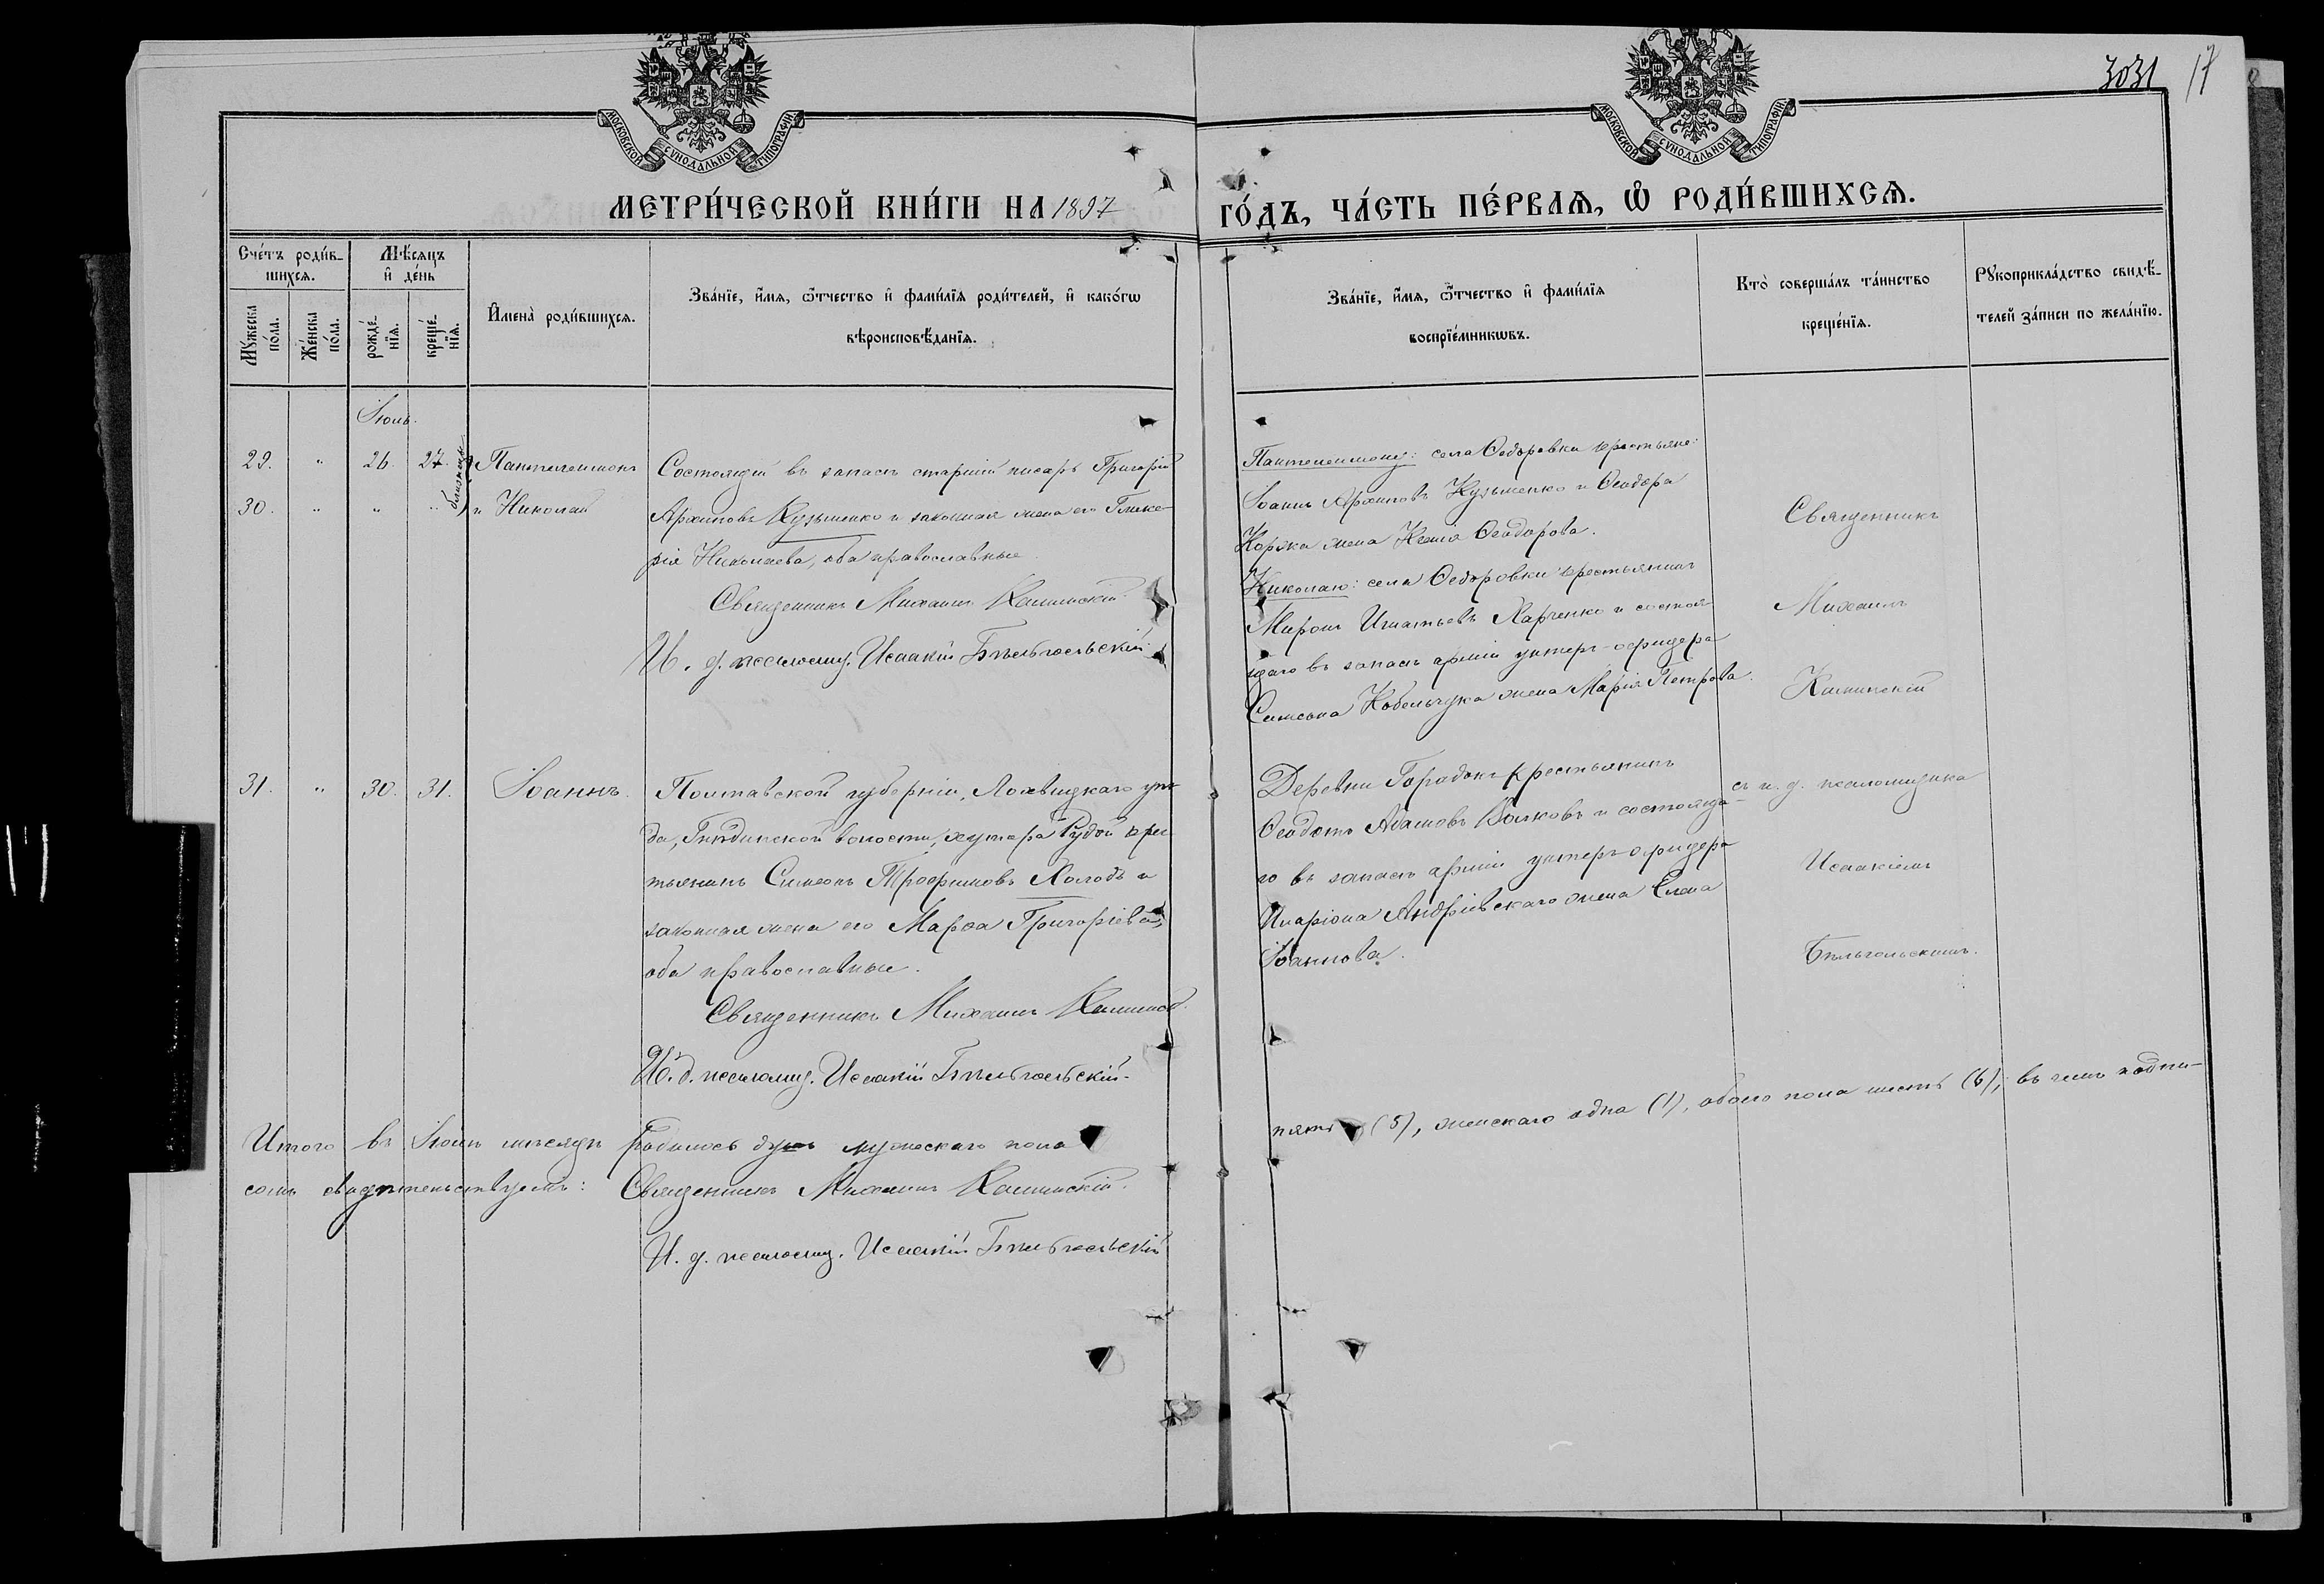 МОСКОВСКОЙ СѴНОДАЛЬНОЙ ТИПОГРАФІИ
МОСКОВСКОЙ СѴНОДАЛЬНОЙ ТИПОГРАФІИ
3031 17
МЕТРИ́ЧЕСКОЙ КНИ́ГИ НА 1897
ГО́ДЪ, ЧА́СТЬ ПЕ́РВАѦ, Ѡ҆ РОДИ́ВШИХСѦ.
Сче́тъ роди́в-
шихсѧ.
Мѣ́сѧцъ
и҆ де́нь
Мꙋ́жеска
по́ла.
Же́нска
по́ла.
рожде́-
нїѧ.
креще́-
нїѧ.
И҆мена̀ роди́вшихсѧ.
Зва́нїе, и҆́мѧ, ѿ́чество и҆ фами́лїѧ роди́телей, и҆ како́гѡ
вѣроисповѣ́данїѧ.
Зва́нїе, и҆́мѧ, ѿ́чество и҆ фами́лїѧ
воспрїе́мникѡвъ.
Кто̀ соверша́лъ та́инство
креще́нїѧ.
Рꙋкоприкла́дство свидѣ́-
телей за́писи по жела́нїю.
Іюль.
29. " 26. 27. близнецы Пантелеимонъ
30. " " " и Николай
Состоящій въ запасѣ старшій писарь Григорій
Архиповъ Кузьменко и законная жена его Глике-
рія Николаева, оба православные.
Священникъ Михаилъ Калинскій
И. д. псаломщ. Исаакій Бѣльгольскій
Пантелеимону: села Ѳедоровки крестьяне:
Іоаннъ Архиповъ Кузьменко и Ѳеодора
Коржа жена Ксенія Ѳеодорова.
Николаю: села Ѳедоровки крестьянинъ
Миронъ Игнатьевъ Харченко и состоя-
щаго въ запасѣ арміи унтеръ-офицера
Симеона Кобельчука жена Марія Петрова.
Священникъ
Михаилъ
Калинскій
31. " 30. 31. Іоаннъ.
Полтавской губерніи, Лохвицкаго уѣз-
да, Гнѣдинской волости, хутора Рудой крес-
тьянинъ Симеонъ Трофимовъ Холодъ и
законная жена его Марѳа Григоріева,
оба православные.
Священникъ Михаилъ Калинск.
И. д. псаломщ. Исаакій Бѣльгольскій
Деревни Городокъ крестьянинъ
Ѳеодотъ Адамовъ Волковъ и состояща-
го въ запасѣ арміи унтеръ-офицера
Иларіона Андріевскаго жена Елена
Іоаннова.
съ и. д. псаломщика
Исаакіемъ
Бѣльгольскимъ.
Итого въ Іюлѣ мѣсяцѣ родилось душъ мужескаго пола
пять (5), женскаго одна (1), обоего пола шесть (6), въ чемъ подпи-
сомъ свидѣтельствуемъ: Священникъ Михаилъ Калинскій.
И. д. псаломщ. Исаакій Бѣльгольскій